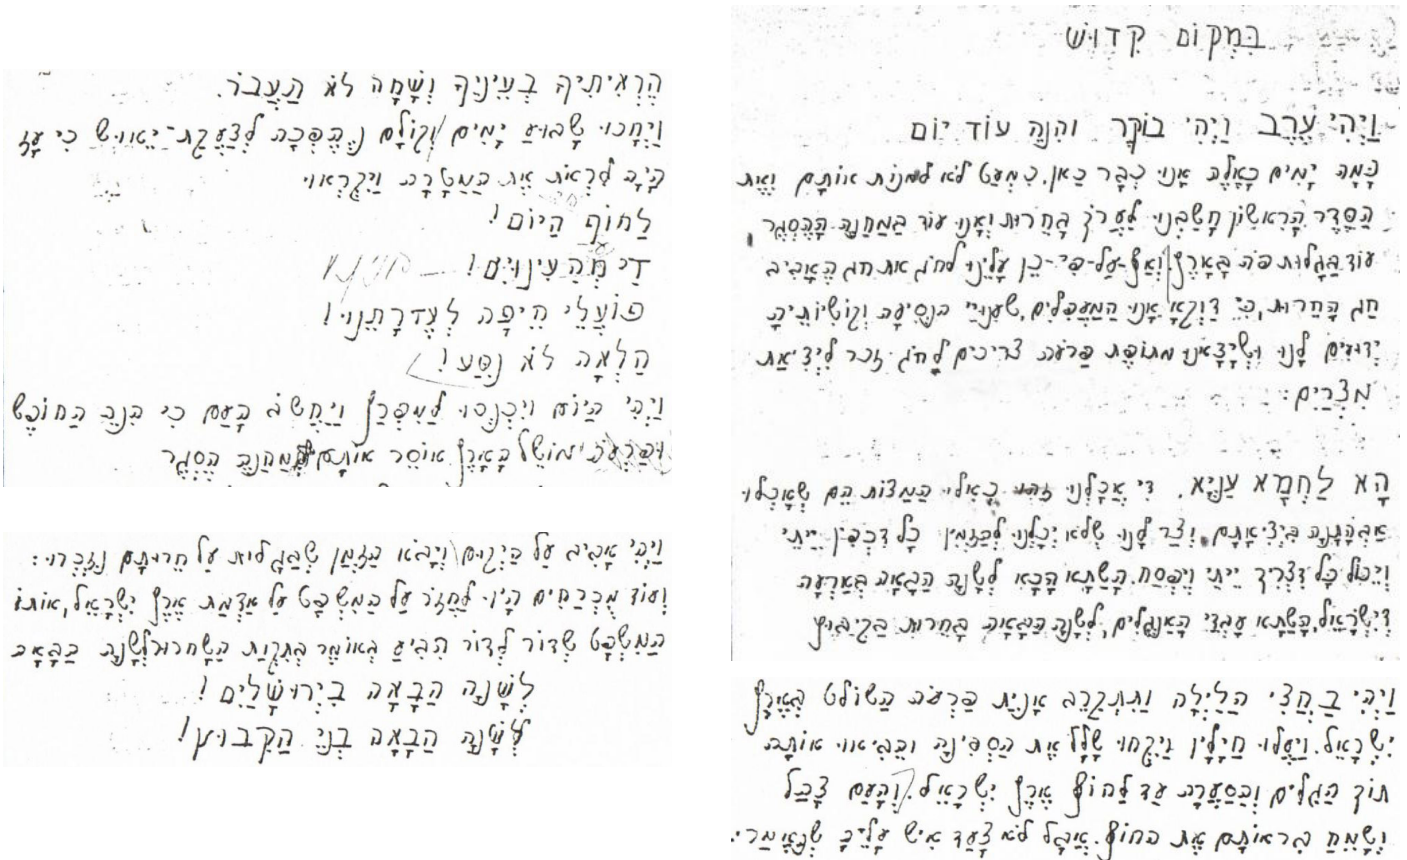 במקום קדוש
ויהי ערב ויהי בוקר והנה עוד יום
כמה ימים כאלה אנו כבר כאן, כמעט לא למנות אותם ואת
הסדר הראשון חשבנו לערך בחרות ואנו עוד במחנה ההסגר
עוד בגלות פה בארץ. ואף-על-פי-כן עלינו לחוג את חג האביב
חג החרות, כי דוקא אנו המעפלים, שענויי הנסיעה וקושיותיה
ידועים לנו ושיצאנו מתופת פרעה צריכים לחג זכר ליציאת
מצרים:
הא לחמא עניא. די אכלנו כאילו המצות הם שאכלו
אבהתנה ביציאתם וצר לנו שלא יכלנו להזמין כל דכפין ייתי
ויכול כל דצריך ייתי ויפסח. השתא הכא לשנה הבאה בארעה
דישראל, השתא עבדי האנגלים, לשנה הבאה בחירות בקיבוץ
ויהי בחצי הלילה ותתקרב אנית פרעה השולט בארץ
ישראל. ויעלו חיילין ויקחו שלל את הספינה והביאו אותה
תוך הגלים והסערה עד לחוף ארץ ישראל. והעם צהל
ושמח בראותם את החוף. אבל לא צעד איש עליך שנאמר:
הראיתיך בעיניך ושמה לא תעבר.
ויחכו שבוע ימים וקולם נהפכה לצעקת-יאוש כי עז
היה לראות את המטרה ויקראו
לחוף היום!
די מהעינוים!
פועלי חיפה לעזרתנו!
הלאה לא נסע!
ויהי היום ויכנסו למפרץ ויחשב העם כי הנה החופש
ופרעה ימושל הארץ אוסר אותם במחנה הסגר
ויהי אביב על היקום ויבא הזמן שבגלות על חרותם נזכרו:
ועוד מכרחים היו לחזור על המשפט על אדמת ארץ ישראל, אותו
המשפט שדור לדור הביע באומר בתקות השחרור לשנה הבאה
לשנה הבאה בירושלים!
לשנה הבאה בני הקבוץ!